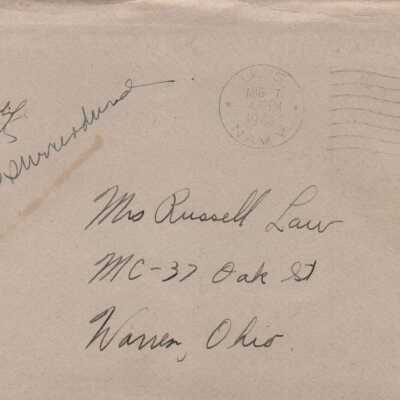 U.S.
AUG 7
NAVY
surrendered
Mrs Russell Law
MC-37 Oak St
Warren, Ohio.